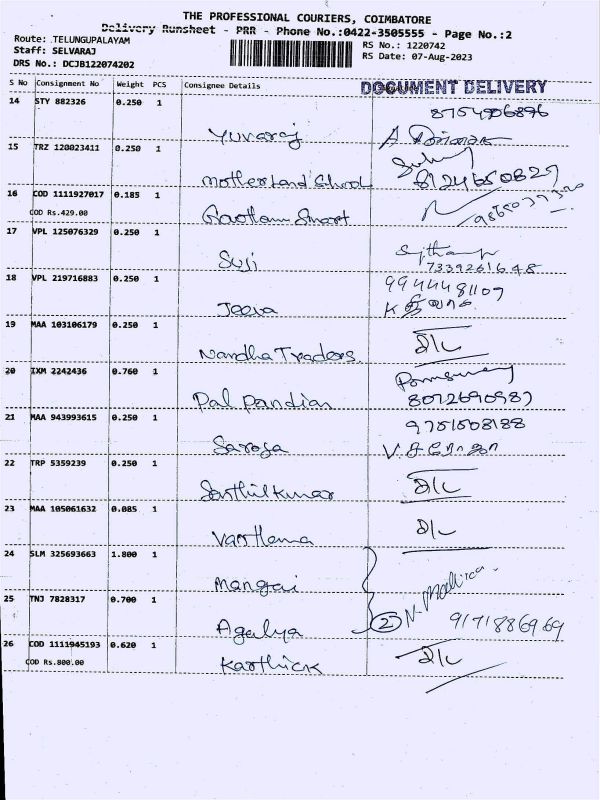 THE PROFESSIONAL COURIERS, COIMBATORE
Delivery Runsheet - PRR - Phone No.:0422-3505555 - Page No.:2
Route: TELUNGUPALAYAM
Staff: SELVARAJ
DRS No.: DCJB122074202
RS No.: 1220742
RS Date: 07-Aug-2023
S No Consignment No Weight PCS Consignee Details
DOCUMENT DELIVERY
14 STY 882326 0.250 1
Yuvaraj
15 TRZ 120023411 0.250 1
Motherland School
16 COD 1111927017 0.185 1
COD Rs.429.00
Gautham Smart
17 VPL 125076329 0.250 1
Suji
7339261648
18 VPL 219716883 0.250 1
9944481107
Jeeva
19 MAA 103106179 0.250 1
Nandha Traders
D/L
20 IXM 2242436 0.760 1
Pal Pandian
8072690987
21 MAA 943993615 0.250 1
9751508188
Saroja
V.சரோஜா
22 TRP 5359239 0.250 1
Senthilkumar
D/L
23 MAA 105061632 0.085 1
Varthana
D/L
24 SLM 325693663 1.800 1
Mangai
25 TNJ 7828317 0.700 1
Agalya
2
N. Mallika
9171886969
26 COD 1111945193 0.620 1
COD Rs.800.00
Karthick
D/L